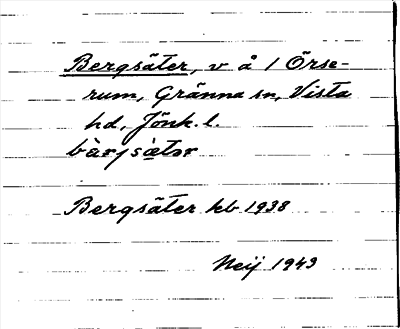 Bergsäter, v å 1 Örse-
rum, Gränna sn, Vista
hd, Jönk. l.
bàrjsä̀tər
Bergsäter kb 1938
Neij 1943